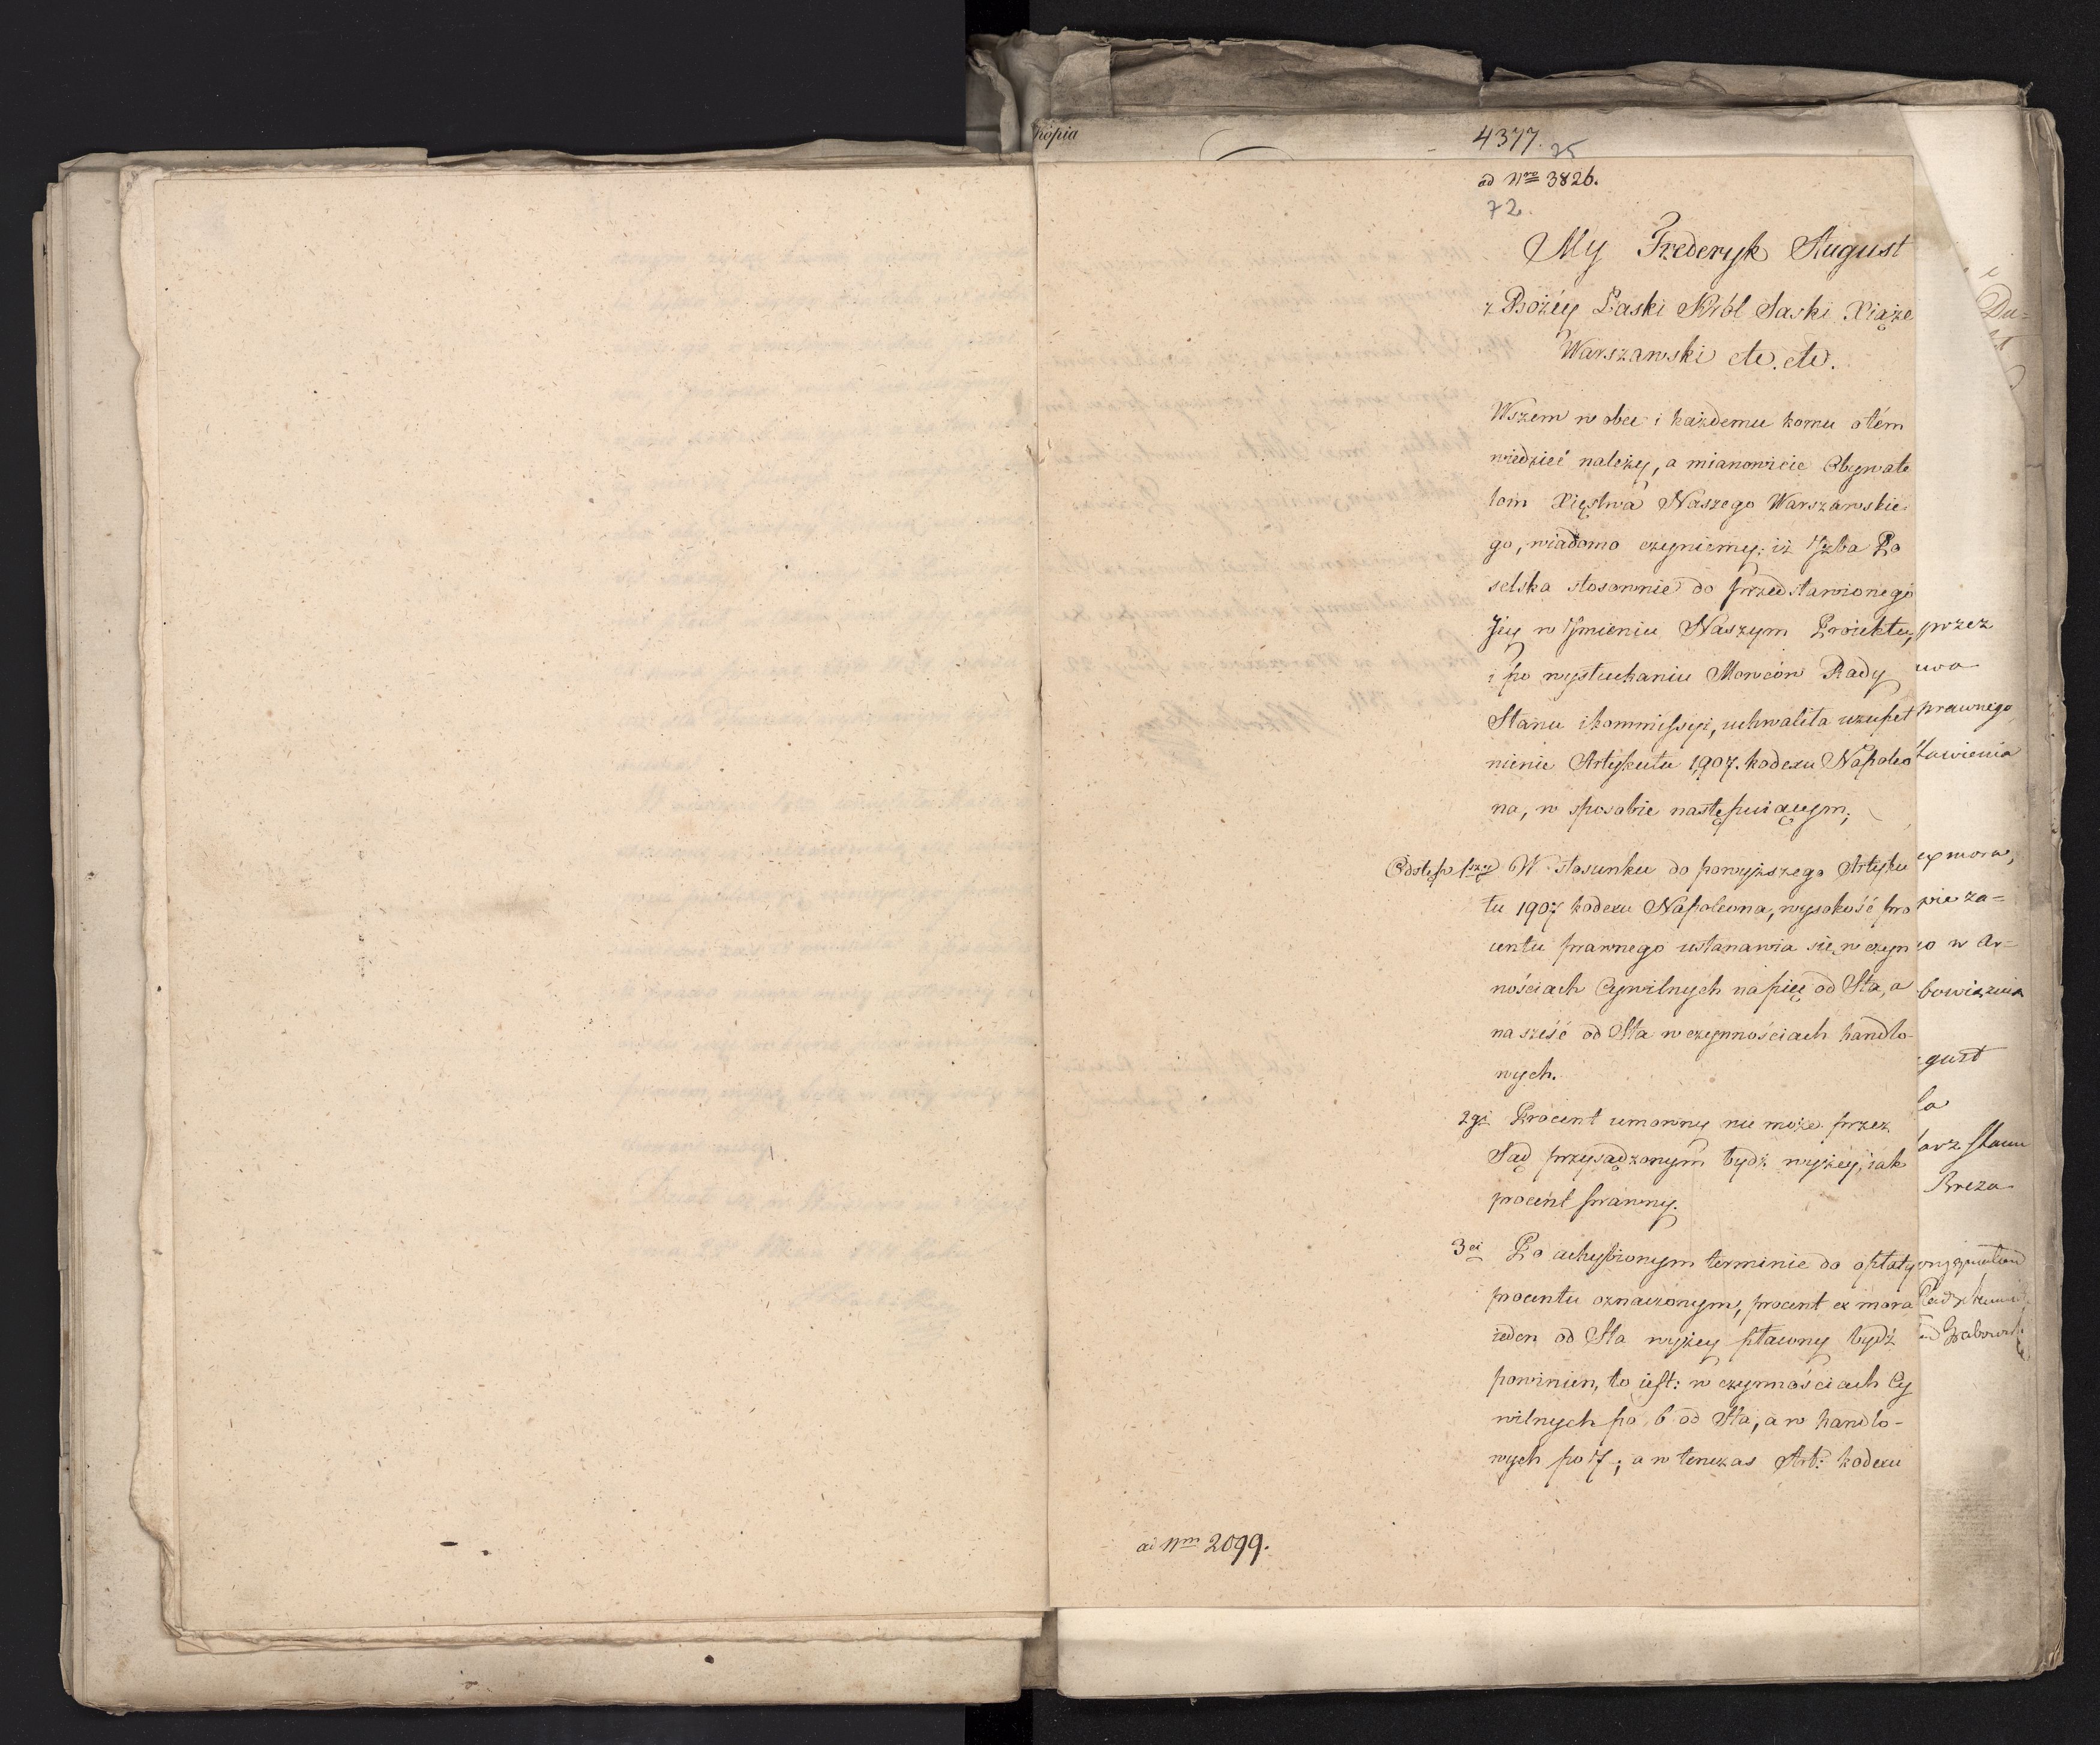 kopia
4377.
75
ad Nro 3826.
72.
My Frederyk August
z Bożey Łaski Król Saski Xiąże
Warszawski etc. etc.
Wszem w obec i każdemu komu otém
wiedzieć należy, a mianowicie Obywate
lom Xięstwa Naszego Warszawskie-
go, wiadomo czyniemy; iż Izba Po
selska stosownie do przedstawionego
Jey w Imieniu Naszym Proiektu,
i po wysłuchaniu Mowców Rady
Stanu i kommissyi, uchwaliła uzupeł
nienie Artykułu 1907. kodexu Napoleo
na, w sposobie następuiącym;
Odstęp 1szy W stosunku do powyższego Artyku
łu 1907 kodexu Napoleona, wysokość pro
centu prawnego ustanawia się w czyn
nościach Cywilnych na pięć od Sta, a
na sześć od Sta w czynnościach handlo-
wych.
2gi Procent umowny nie może przez
Sąd przysądzonym bydź wyżey, iak
procent prawny.
3ci Po uchybionym terminie do opłaty
procentu oznaczonym, procent ex mora
ieden od Sta wyżey płacony bydź
powinien, to iest: w czynnościach Cy
wilnych po 6 od Sta, a w handlo-
wych po 7; a w tenczas Art: kodexu
ad Nrm 2099.
Du=
przez
wa
prawnego
stawienia
ex mora,
wie za=
o w Ar=
bowiązuia
gust
la
tarz Stanu
Breza
Grabowski